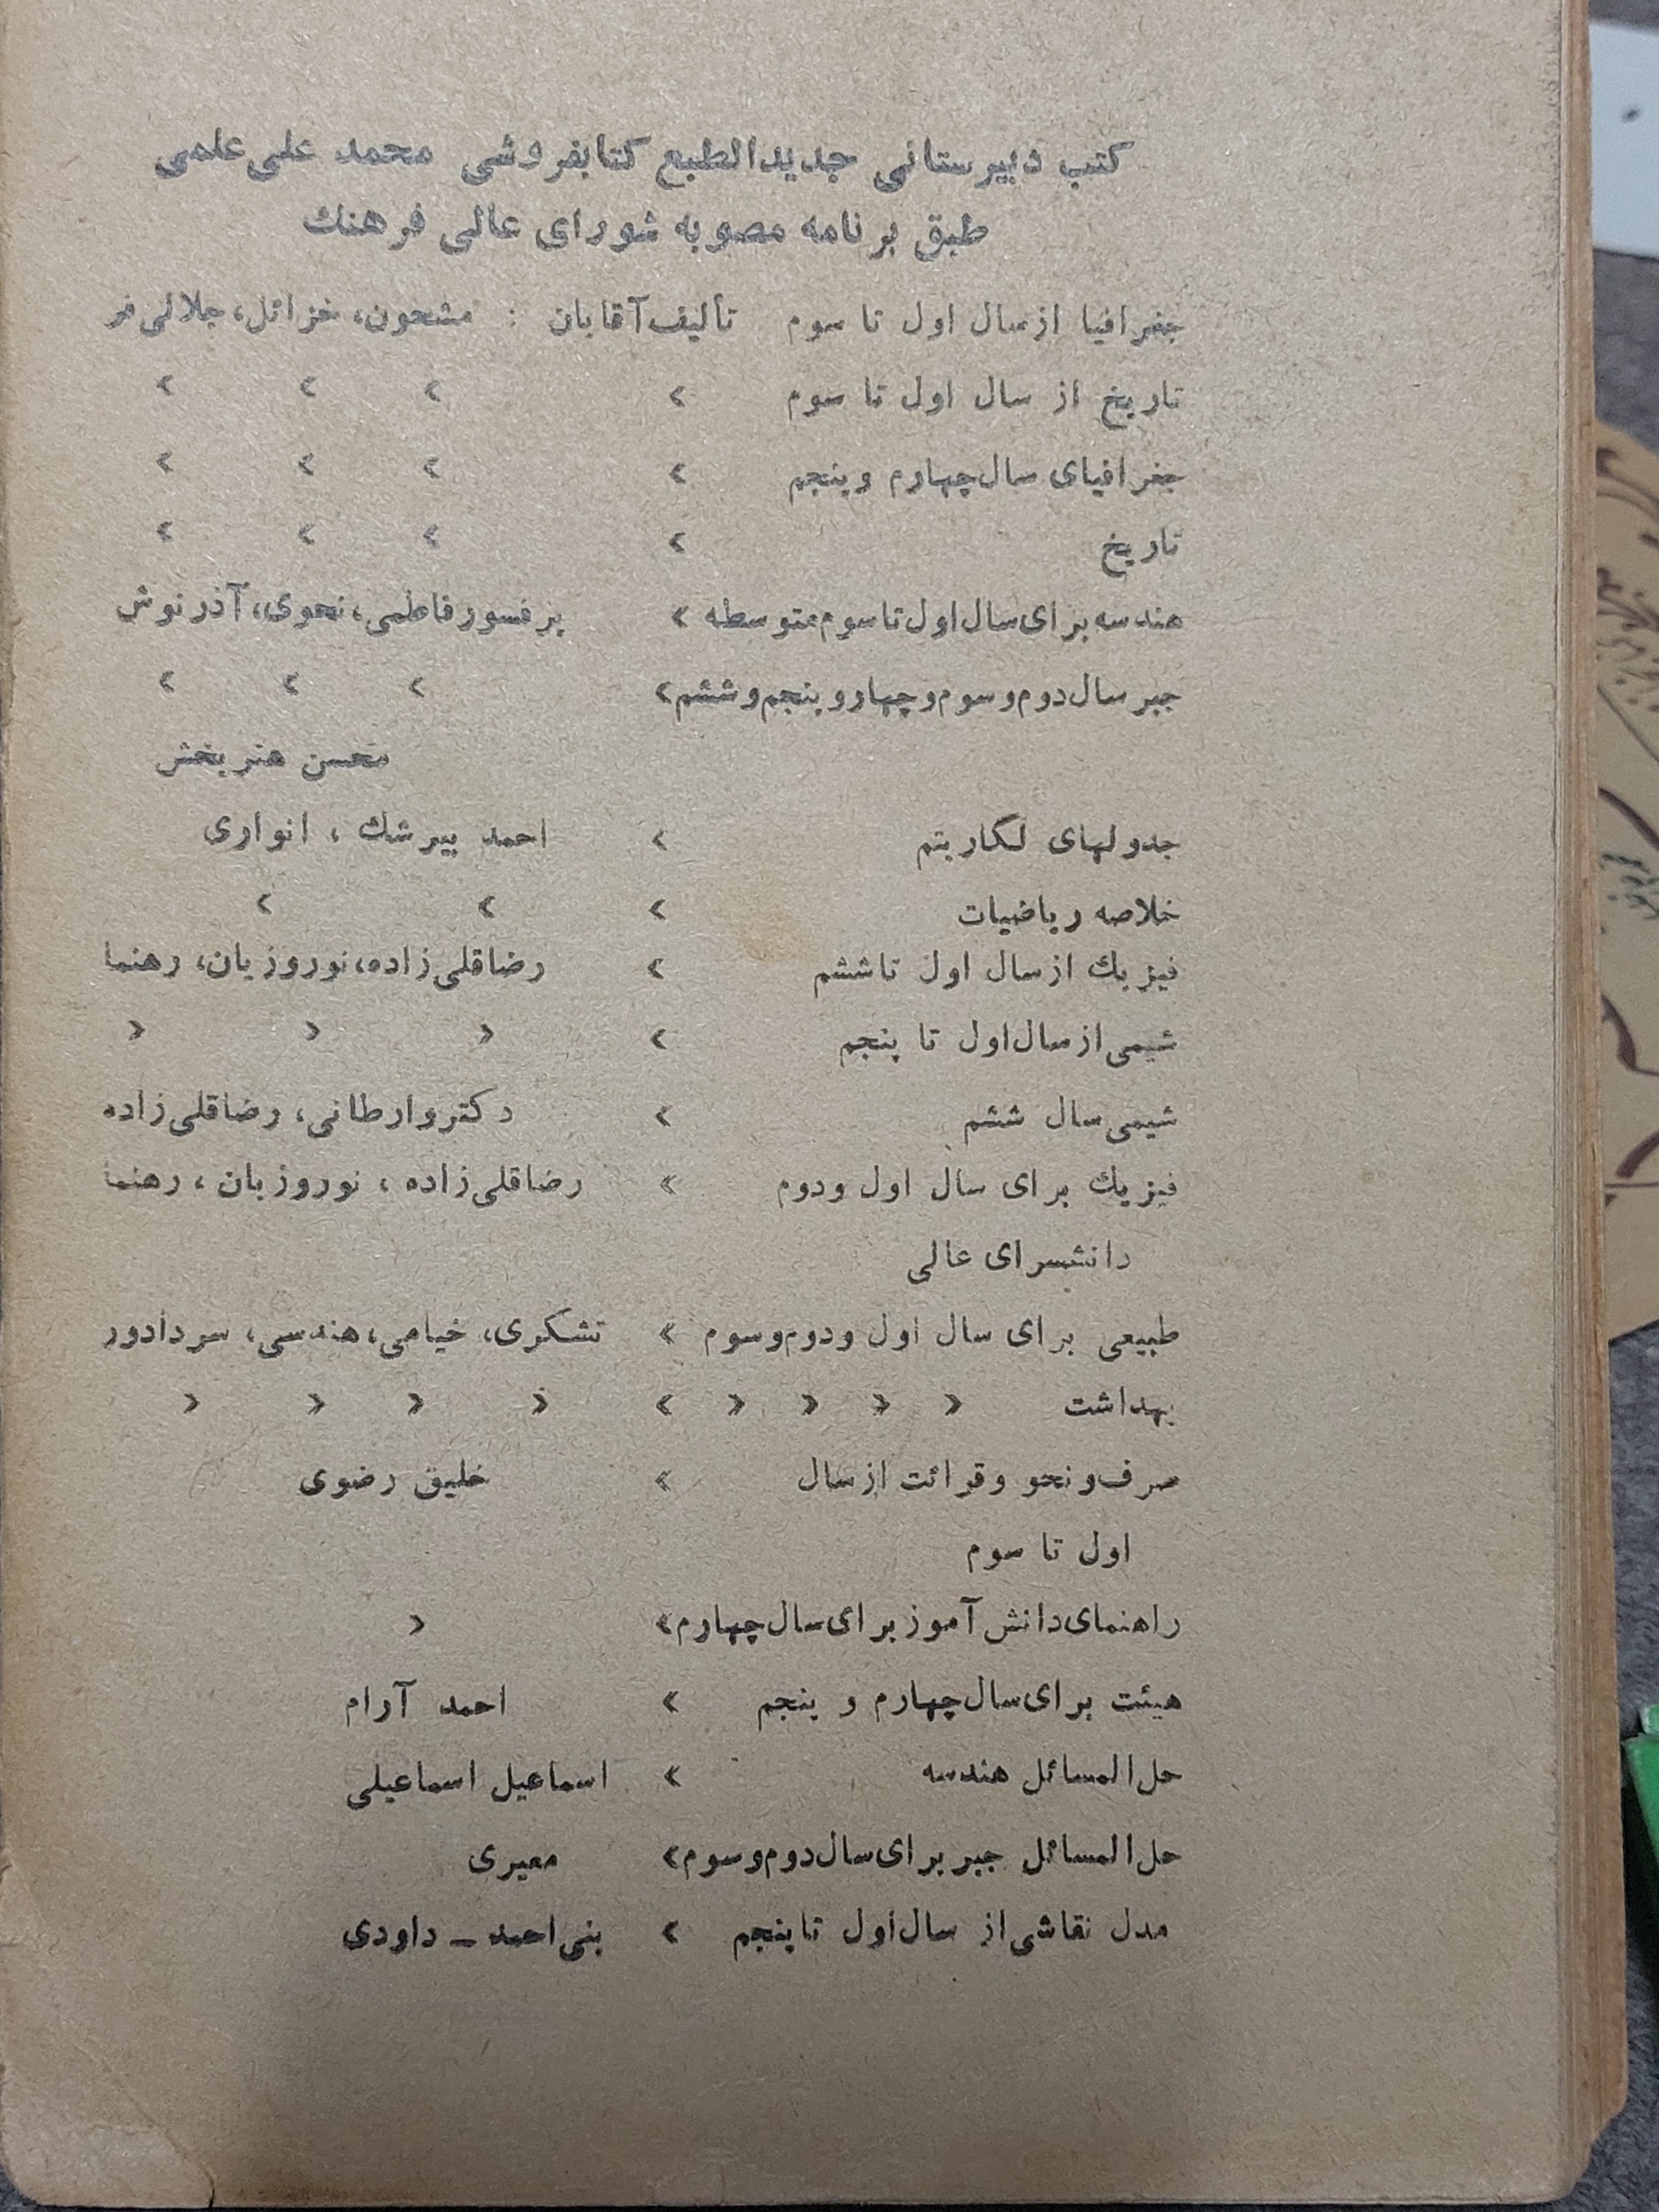 کتب دبیرستانی جدیدالطبع کتابفروشی محمد علی علمی
طبق برنامه مصوبه شورای عالی فرهنك
جغرافیا از سال اول تا سوم تألیف آقایان : مشحون، خزائل، جلالی فر
تاریخ از سال اول تا سوم » » » »
جغرافیای سال چهارم و پنجم » » » »
تاریخ » » » »
هندسه برای سال اول تا سوم متوسطه » پرفسور فاطمی، نحوی، آذرنوش
جبر سال دوم و سوم و چهار و پنجم و ششم » » » »
محسن هنربخش
جدولهای لگاریتم » احمد بیرشك ، انواری
خلاصه ریاضیات » » »
فیزیك از سال اول تا ششم » رضاقلی زاده، نوروزیان، رهنما
شیمی از سال اول تا پنجم » « « «
شیمی سال ششم » دکتر وارطانی، رضاقلی زاده
فیزیك برای سال اول و دوم » رضاقلی زاده ، نوروزیان ، رهنما
دانشسرای عالی
طبیعی برای سال اول و دوم و سوم » تشکری، خیامی، هندسی، سردادور
بهداشت « « « « » « « « «
صرف و نحو و قرائت از سال » خلیق رضوی
اول تا سوم
راهنمای دانش آموز برای سال چهارم » «
هیئت برای سال چهارم و پنجم » احمد آرام
حل المسائل هندسه » اسماعیل اسماعیلی
حل المسائل جبر برای سال دوم و سوم » معیری
مدل نقاشی از سال اول تا پنجم » بنی احمد ــ داودی